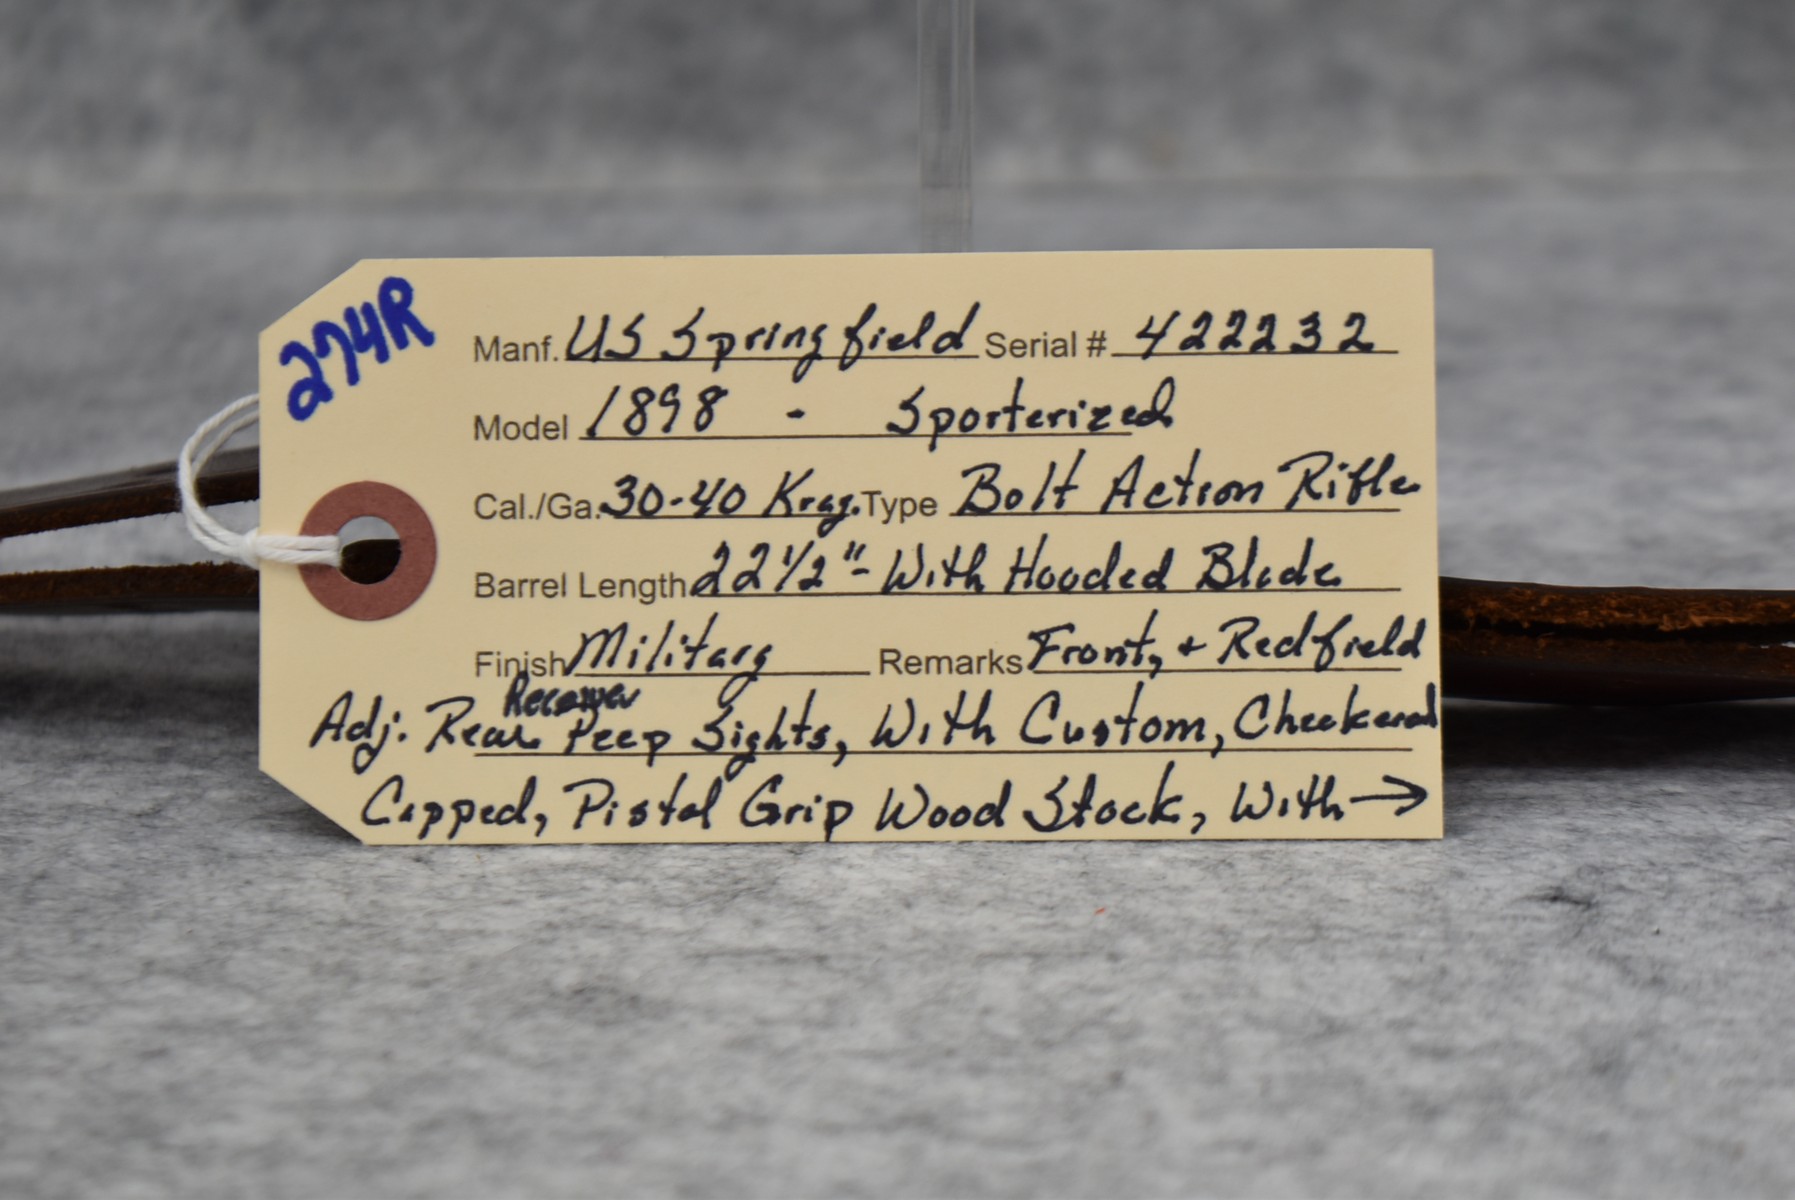 274R
Manf. US Springfield Serial # 422232
Model 1898 - Sporterized
Cal./Ga. 30-40 Krag. Type Bolt Action Rifle
Barrel Length 22 1/2" - With Hooded Blade
Finish Military Remarks Front, + Redfield
Receiver
Adj. Rear Peep Sights, With Custom, Checkered
Capped, Pistol Grip Wood Stock, With →